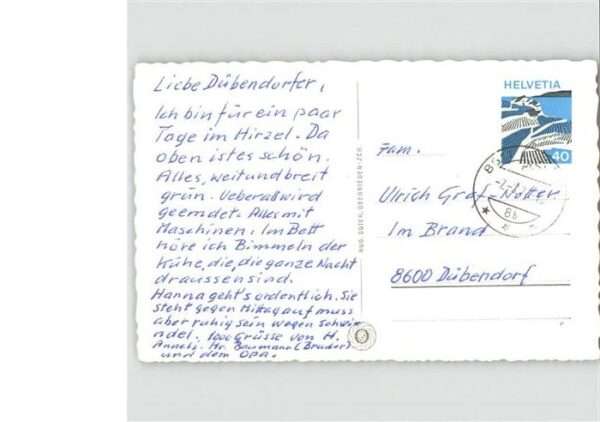 Liebe Dübendorfer,
Ich bin für ein paar
Tage im Hirzel. Da
oben ist es schön.
Alles, weit und breit
grün. Ueberall wird
geerndet. Alles mit
Maschinen. Im Bett
höre ich Bimmeln der
Kühe, die, die ganze Nacht
draussen sind.
Hanna geht's ordentlich. Sie
steht gegen Mittag auf muss
aber ruhig sein wegen Schwin
del. 1000 Grüsse von H.
Baumann (Bruder)
und dem OPA.
HELVETIA
40
Fam.
Ulrich Graf-Notter
Im Brand
8600 Dübendorf